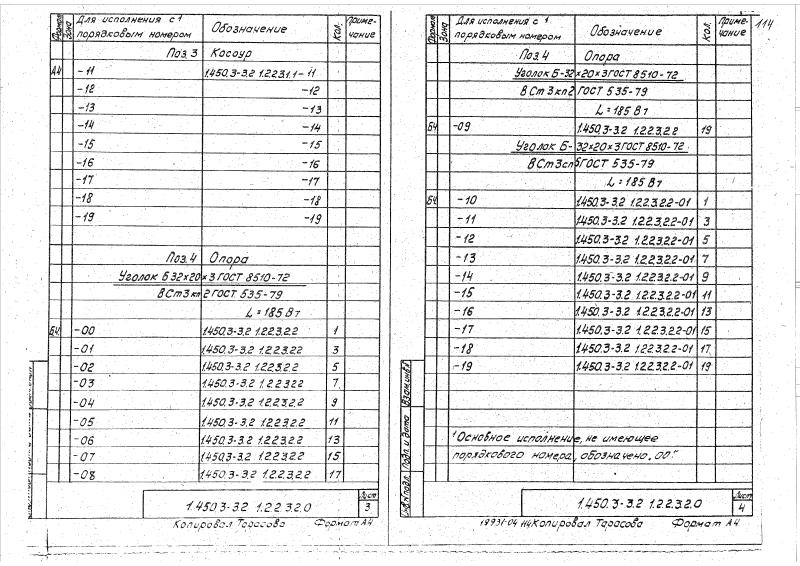 Формат Зона Для исполнения с 1 порядковым номером Обозначение Кол. Примечание
Поз.3 Косоур
А4 -11 1.450.3-3.2 1.2.2.3.1.1-11
-12 -12
-13 -13
-14 -14
-15 -15
-16 -16
-17 -17
-18 -18
-19 -19
Поз.4 Опора
Уголок Б 32×20×3 ГОСТ 8510-72
ВСт3кп2 ГОСТ 535-79
L=185 Вт
Б4 -00 1.450.3-3.2 1.2.2.3.2.2 1
-01 1.450.3-3.2 1.2.2.3.2.2 3
-02 1.450.3-3.2 1.2.2.3.2.2 5
-03 1.450.3-3.2 1.2.2.3.2.2 7
-04 1.450.3-3.2 1.2.2.3.2.2 9
-05 1.450.3-3.2 1.2.2.3.2.2 11
-06 1.450.3-3.2 1.2.2.3.2.2 13
-07 1.450.3-3.2 1.2.2.3.2.2 15
-08 1.450.3-3.2 1.2.2.3.2.2 17
1.450.3-3.2 1.2.2.3.2.0
Лист
3
Копировал Тарасова Формат А4
114
Формат Зона Для исполнения с 1 порядковым номером Обозначение Кол. Примечание
Поз.4 Опора
Уголок Б-32×20×3 ГОСТ 8510-72
ВСт3кп2 ГОСТ 535-79
L=185 Вт
Б4 -09 1.450.3-3.2 1.2.2.3.2.2 19
Уголок Б-32×20×3 ГОСТ 8510-72
ВСт3сп5 ГОСТ 535-79
L=185 Вт
Б4 -10 1.450.3-3.2 1.2.2.3.2.2-01 1
-11 1.450.3-3.2 1.2.2.3.2.2-01 3
-12 1.450.3-3.2 1.2.2.3.2.2-01 5
-13 1.450.3-3.2 1.2.2.3.2.2-01 7
-14 1.450.3-3.2 1.2.2.3.2.2-01 9
-15 1.450.3-3.2 1.2.2.3.2.2-01 11
-16 1.450.3-3.2 1.2.2.3.2.2-01 13
-17 1.450.3-3.2 1.2.2.3.2.2-01 15
-18 1.450.3-3.2 1.2.2.3.2.2-01 17
-19 1.450.3-3.2 1.2.2.3.2.2-01 19
1 Основное исполнение, не имеющее
порядкового номера, обозначено „00."
Инв.№ подл. Подп. и дата Взам.инв.№
1.450.3-3.2 1.2.2.3.2.0
Лист
4
19931-04 114 Копировал Тарасова Формат А4